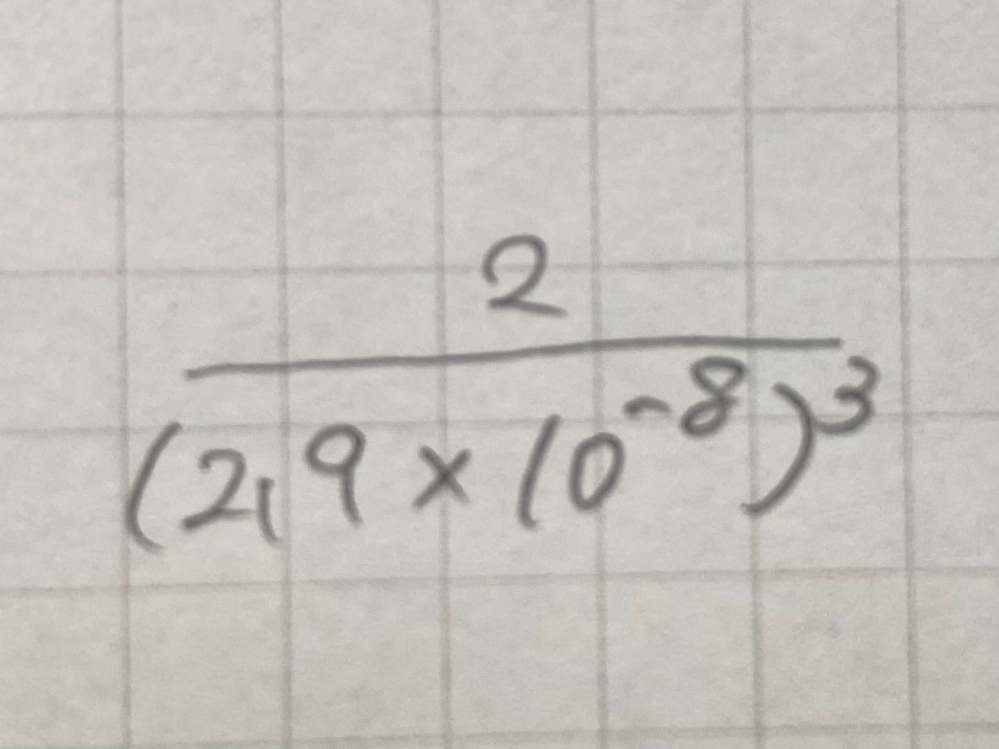 2
(2,9 × 10⁻⁸)³